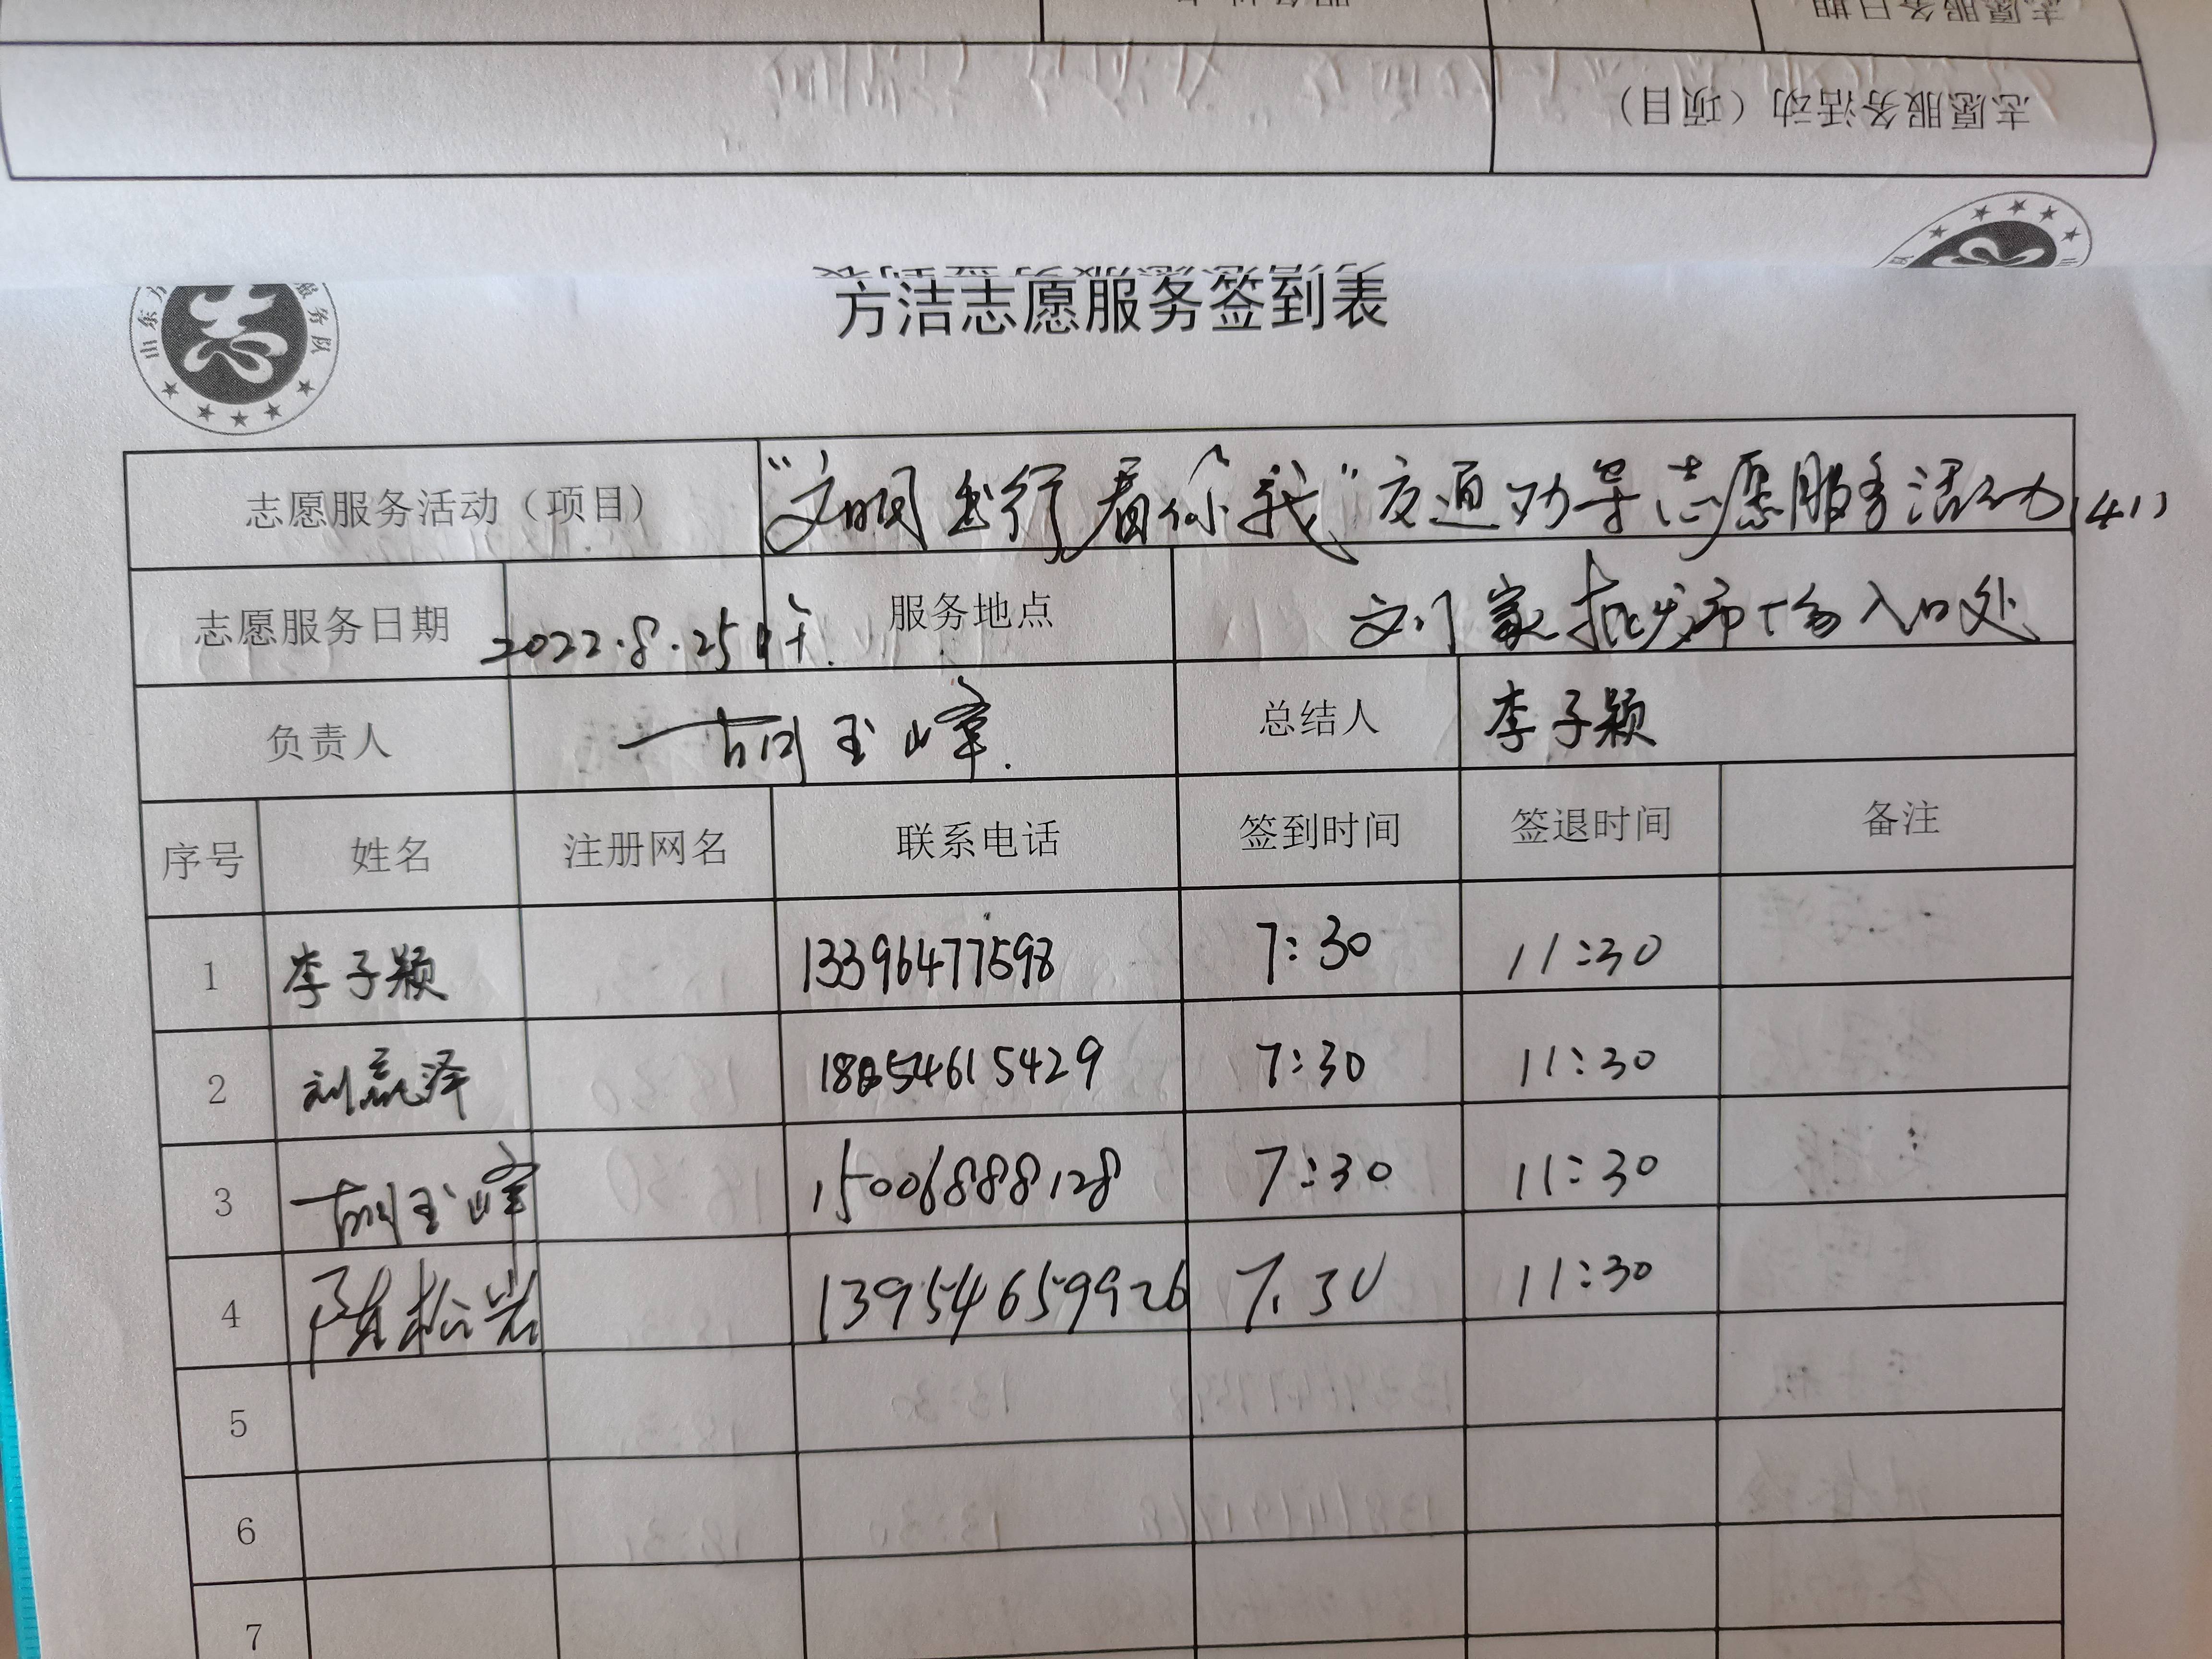 志愿服务日期
志愿服务活动（项目）
方洁志愿服务签到表
山东
服务队
志愿服务活动（项目） “文明出行看你我”交通劝导志愿服务活动（41）
志愿服务日期 2022.8.25日 服务地点 刘家批发市场入口处
负责人 胡玉峰. 总结人 李子颖
序号 姓名 注册网名 联系电话 签到时间 签退时间 备注
1 李子颖 13396477598 7:30 11:30
2 刘赢泽 18654615429 7:30 11:30
3 胡玉峰 15006888128 7:30 11:30
4 陈松岩 13954659926 7.30 11:30
5
6
7